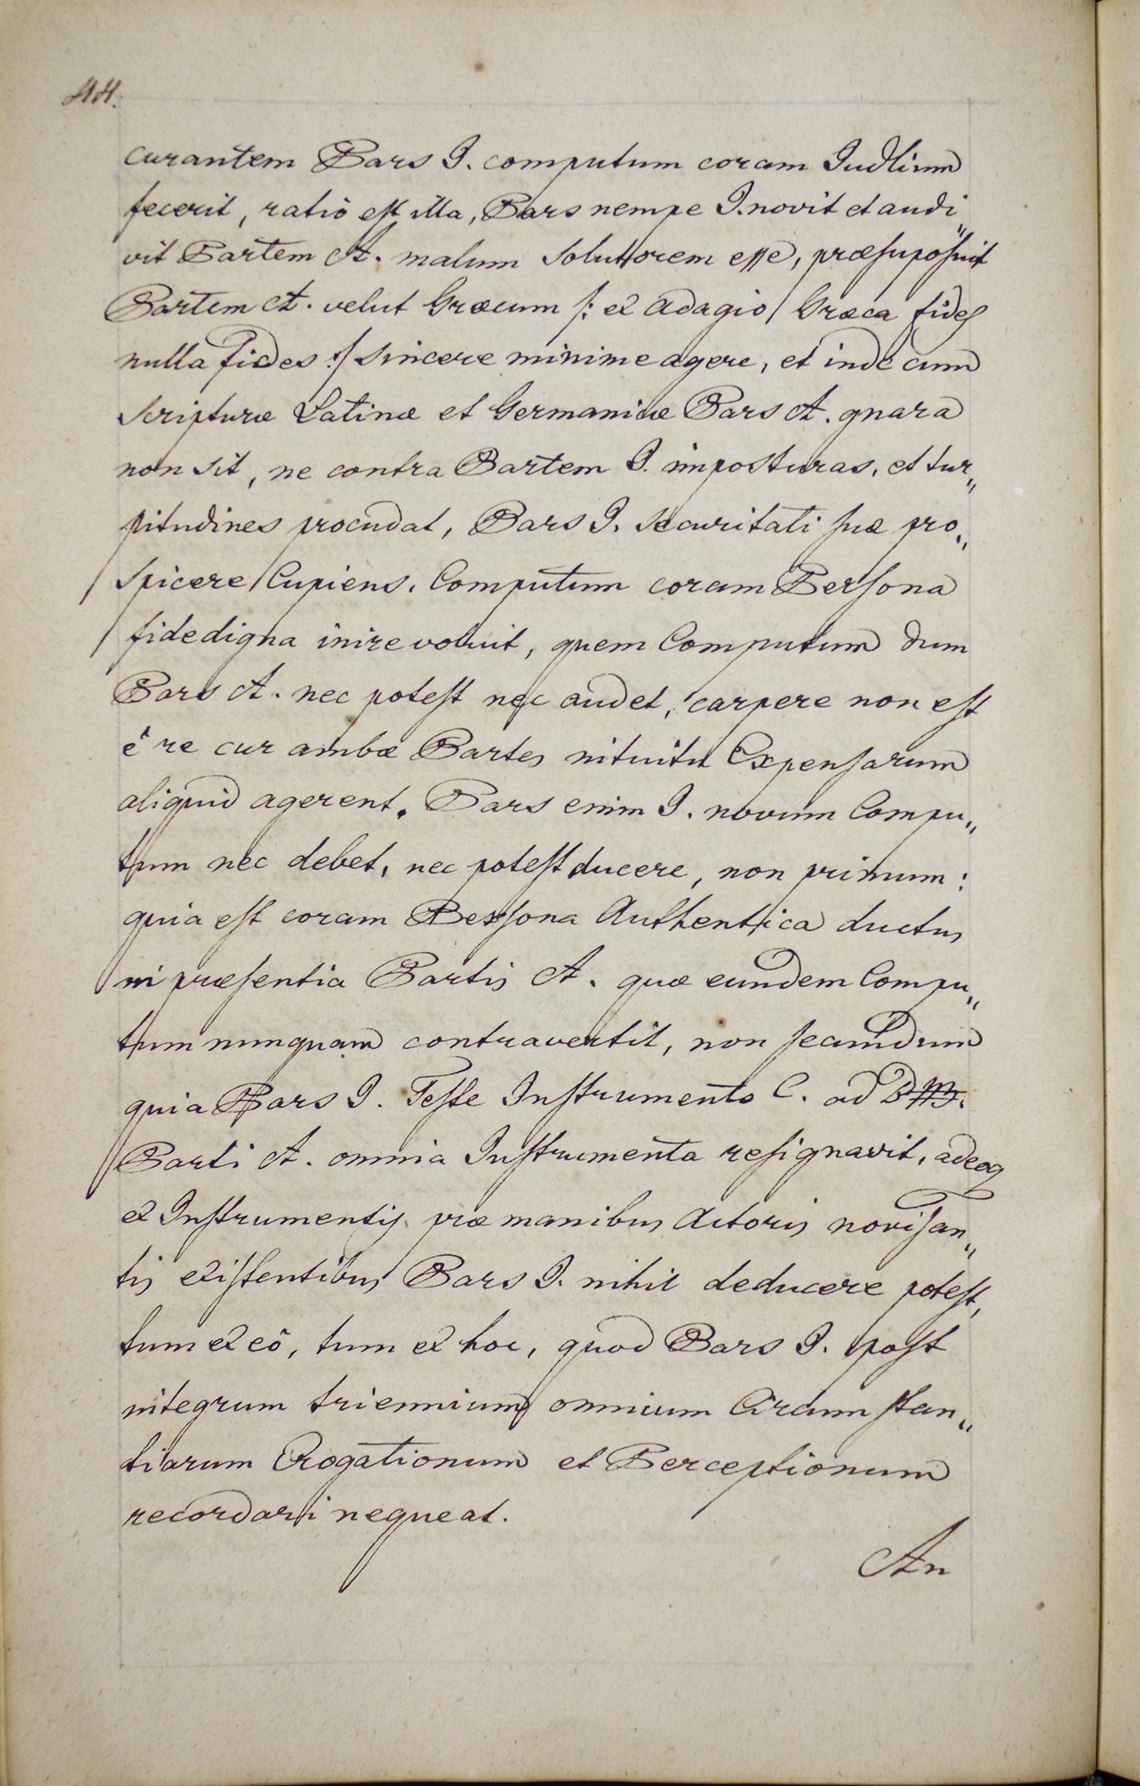 44.
curantem Pars I. computum coram Judlium
fecerit, ratio est illa, Pars nempe I. novit et audi„
vit Partem A. malum Solutorem esse, præsuposuit
Partem A. velut Græcum /: ex adagio / Græca fides
nulla fides :/ sincere minime agere, et inde cum
scripturæ Latinæ et Germanicæ Pars A. gnara
non sit, ne contra Partem I. imposturas, et tur„
pitudines procudat, Pars I. securitati suæ pro„
spicere Cupiens, Computum coram Persona
fidedigna inire voluit, quem Computum dum
Pars A. nec potest nec audet, carpere non est
è re cur ambæ Partes intuitu Expensarum
aliquid agerent. Pars enim I. novum Compu„
tum nec debet, nec potest ducere, non primum:
quia est coram Persona Authentica ductus
in præsentia Partis A. quæ eundem Compu„
tum nunquam contravertit, non secundum
quia Pars I. Teste Instrumento C. ad
Parti A. omnia Instrumenta resignavit, adeoq
ex Instrumentis præ manibus Actoris novisan„
tis existentibus Pars I. nihil deducere potest,
tum ex eô, tum ex hoc, quod Pars I. post
integrum triennium omnium Circumstan„
tiarum Erogationum et Perceptionum
recordari nequeat.
An